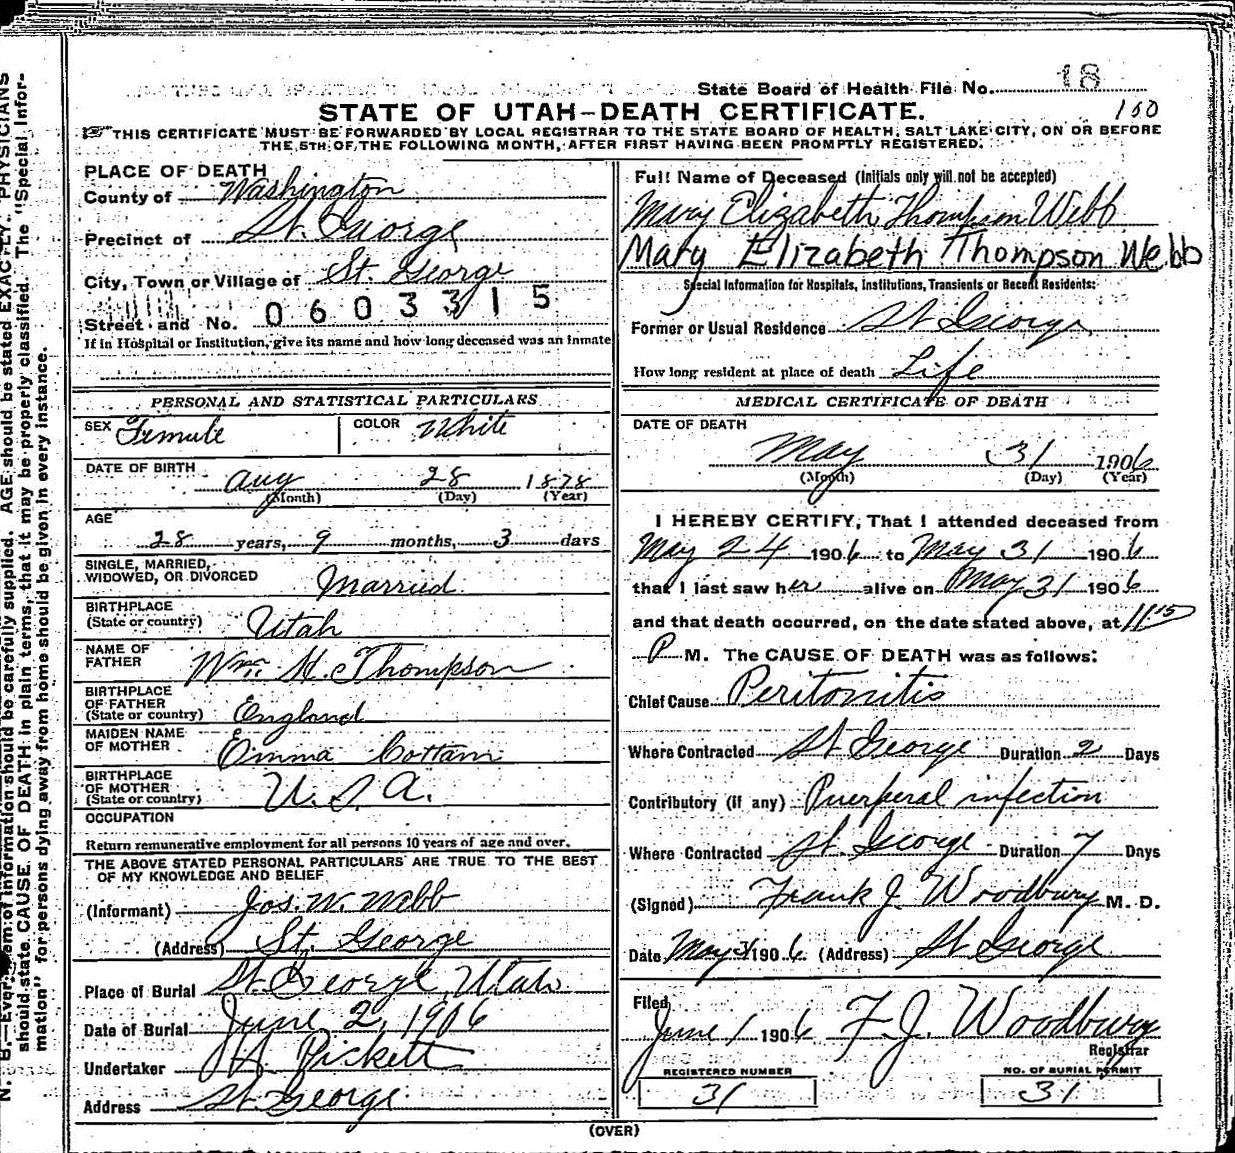 State Board of Health File No. 18
STATE OF UTAH—DEATH CERTIFICATE. 160
THIS CERTIFICATE MUST BE FORWARDED BY LOCAL REGISTRAR TO THE STATE BOARD OF HEALTH, SALT LAKE CITY, ON OR BEFORE
THE 5TH OF THE FOLLOWING MONTH, AFTER FIRST HAVING BEEN PROMPTLY REGISTERED.
PLACE OF DEATH
County of Washington
Precinct of St. George
City, Town or Village of St. George
0603315
Street and No.
If in Hospital or Institution, give its name and how long deceased was an inmate
PERSONAL AND STATISTICAL PARTICULARS
SEX Female COLOR White
DATE OF BIRTH Aug 28 1878
(Month) (Day) (Year)
AGE
28 years, 9 months, 3 days
SINGLE, MARRIED,
WIDOWED, OR DIVORCED Married
BIRTHPLACE
(State or country) Utah
NAME OF
FATHER Wm. H. Thompson
BIRTHPLACE
OF FATHER
(State or country) England
MAIDEN NAME
OF MOTHER Emma Cottam
BIRTHPLACE
OF MOTHER
(State or country) U. S. A.
OCCUPATION
Return remunerative employment for all persons 10 years of age and over.
THE ABOVE STATED PERSONAL PARTICULARS ARE TRUE TO THE BEST
OF MY KNOWLEDGE AND BELIEF
(Informant) Jos. W. Webb
(Address) St. George
Place of Burial St. George, Utah
Date of Burial June 2, 1906
Undertaker Pickett
Address St. George
Full Name of Deceased (Initials only will not be accepted)
Mary Elizabeth Thompson Webb
Mary Elizabeth Thompson Webb
Special Information for Hospitals, Institutions, Transients or Recent Residents:
Former or Usual Residence St George
How long resident at place of death Life
MEDICAL CERTIFICATE OF DEATH
DATE OF DEATH
May 31 1906
(Month) (Day) (Year)
I HEREBY CERTIFY, That I attended deceased from
May 24 1906 to May 31 1906
that I last saw her alive on May 31 1906
and that death occurred, on the date stated above, at 11:15
P M. The CAUSE OF DEATH was as follows:
Chief Cause Peritonitis
Where Contracted St George Duration 2 Days
Contributory (if any) Puerperal infection
Where Contracted St. George Duration 7 Days
(Signed) Frank J. Woodbury M. D.
Date May 31 1906 (Address) St George
Filed
June 1 1906 F. J. Woodbury
Registrar
REGISTERED NUMBER NO. OF BURIAL PERMIT
31 31
(OVER)
N. B.—Every item of information should be carefully supplied. AGE should be stated EXACTLY. PHYSICIANS
should state CAUSE OF DEATH in plain terms, that it may be properly classified. The "Special Infor-
mation" for persons dying away from home should be given in every instance.